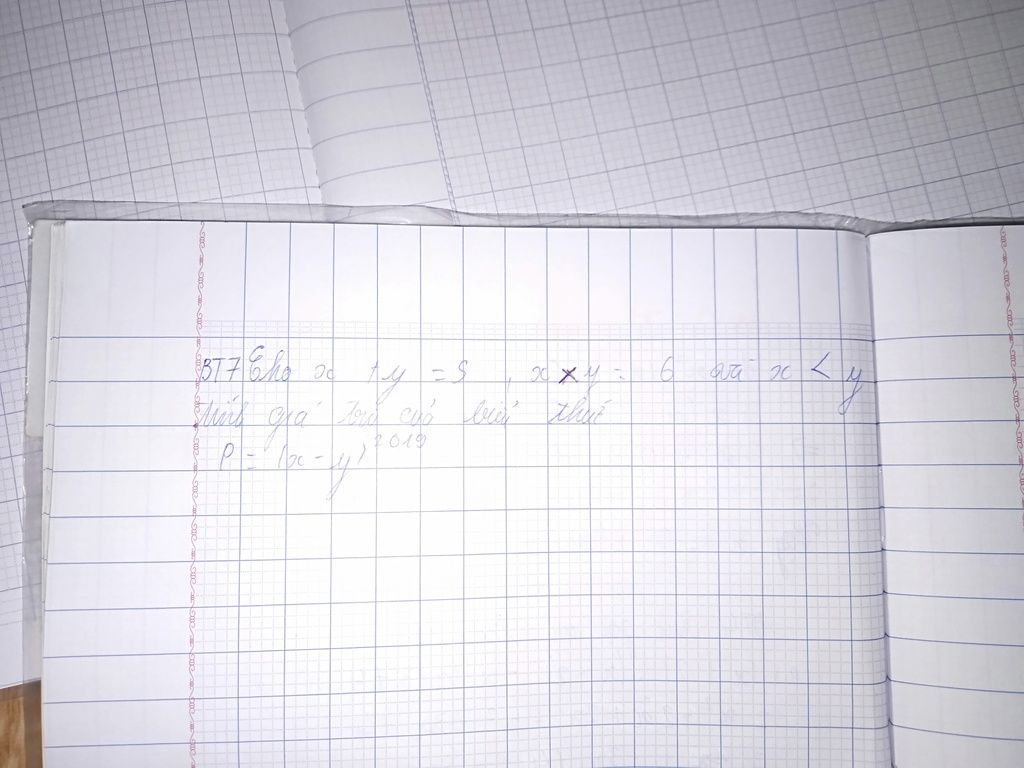 BT7 Cho x + y = 5 , x × y = 6 và x < y
tính giá trị của biểu thức
P = (x - y)²⁰¹⁹